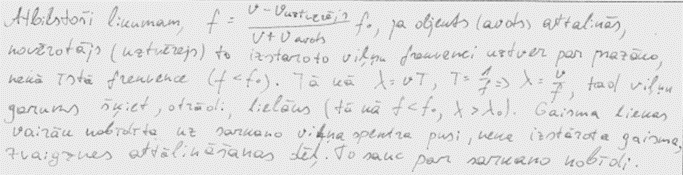 Atbilstoši likumam, f = (v - v uztvērējs)/(v + v avots) f₀, ja objekts (avots) attālinās,
novērotājs (uztvērējs) to izstaroto viļņu frekvenci uztver par mazāko,
nekā īstā frekvence (f < f₀). Tā kā λ = vT, T = 1/f => λ = v/f, tad viļņu
garums šķiet, otrādi, lielāks (tā kā f < f₀, λ > λ₀). Gaisma liekas
vairāk nobīdīta uz sarkano viļņa spektra pusi, nekā izstārota gaisma,
zvaigznes attālināšanas dēļ. To sauc par sarkano nobīdi.